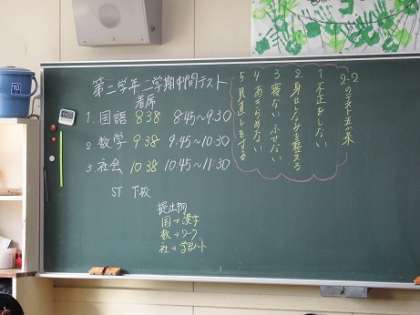 第二学年二学期中間テスト
着席
1. 国語 8:38 8:45～9:30
2 数学 9:38 9:45～10:30
3 社会 10:38 10:45～11:30
ST 下校
提出物
国→漢字
数→ワーク
社→
2-2の
1 不正をしない
2 身だしなみを整える
3 寝ない ふせない
4 あきらめない
5 見直しをする